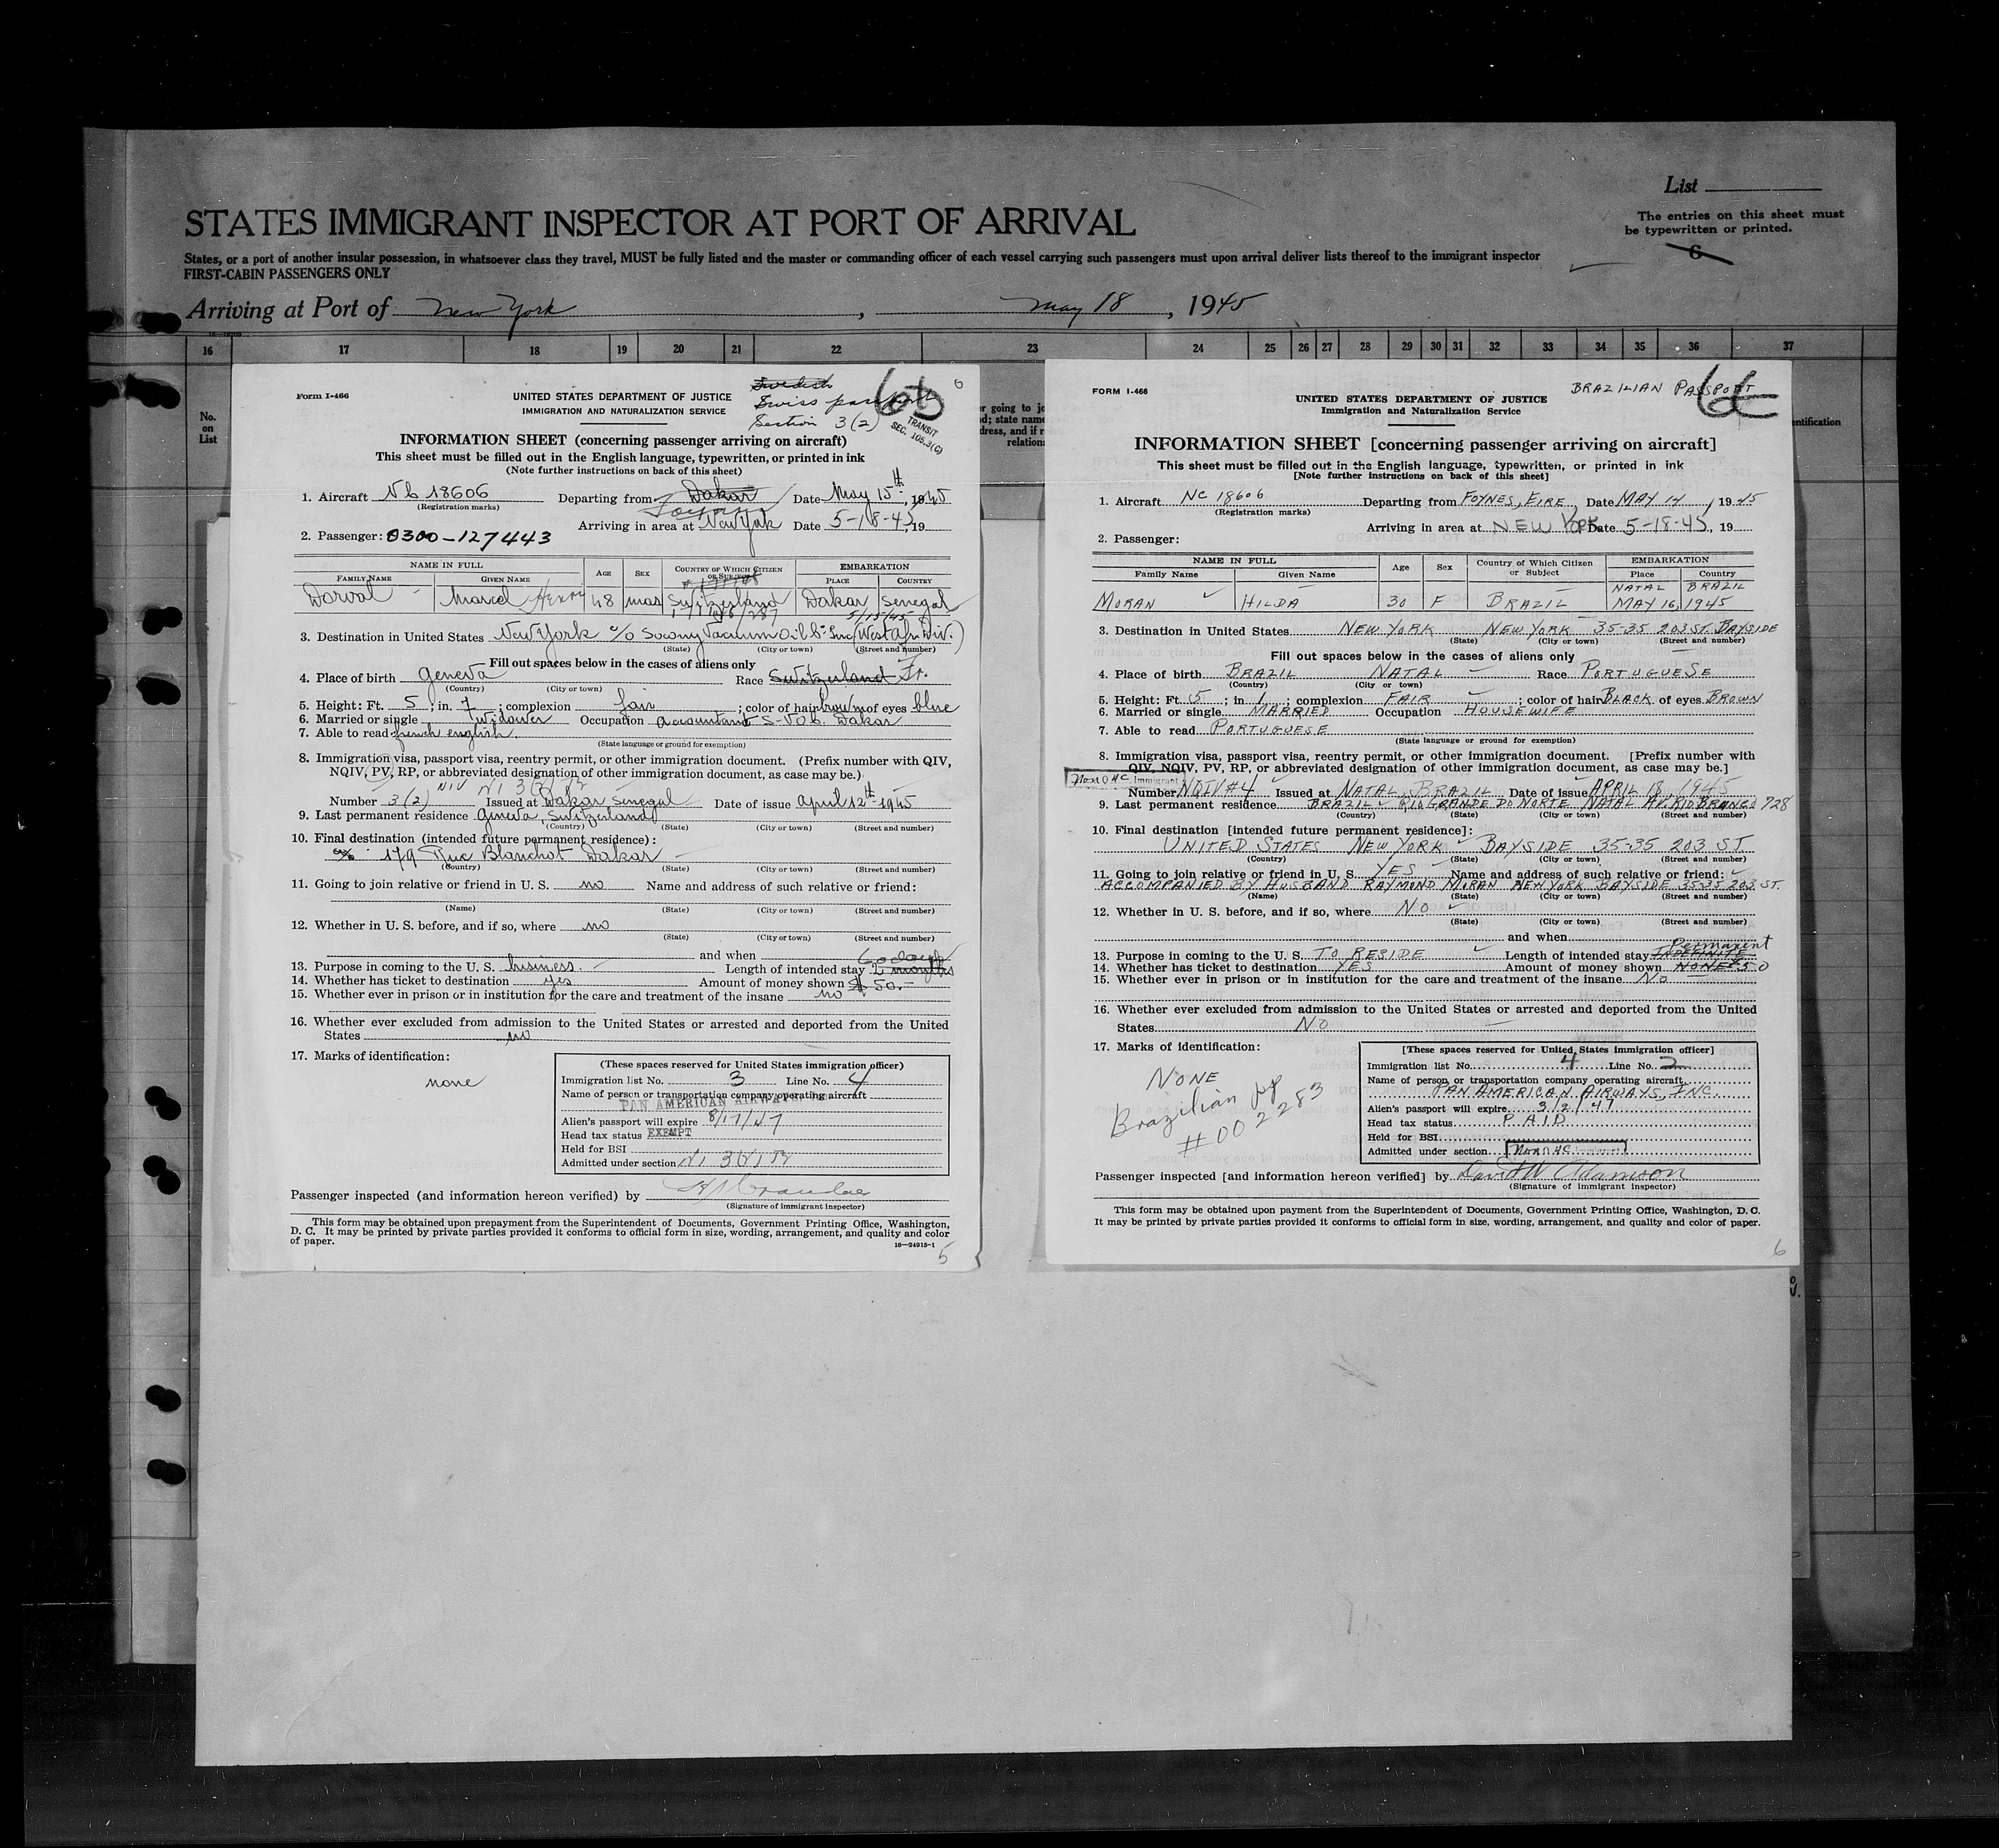 List
STATES IMMIGRANT INSPECTOR AT PORT OF ARRIVAL
The entries on this sheet must
be typewritten or printed.
6
States, or a port of another insular possession, in whatsoever class they travel, MUST be fully listed and the master or commanding officer of each vessel carrying such passengers must upon arrival deliver lists thereof to the immigrant inspector
FIRST-CABIN PASSENGERS ONLY
Arriving at Port of New York, May 18, 1945
16 17 18 19 20 21 22 23 24 25 26 27 28 29 30 31 32 33 34 35 36 37
No.
on
List
Form I-466
UNITED STATES DEPARTMENT OF JUSTICE
IMMIGRATION AND NATURALIZATION SERVICE
Swedish
Swiss passport
Section 3(2)
6b
TRANSIT
SEC. 105.3(C)
INFORMATION SHEET (concerning passenger arriving on aircraft)
This sheet must be filled out in the English language, typewritten, or printed in ink
(Note further instructions on back of this sheet)
1. Aircraft Nb 18606 Departing from Dakar Date May 15th, 1945
(Registration marks)
Arriving in area at New York Date 5-18-45, 19
2. Passenger: 0300-127443
NAME IN FULL AGE SEX COUNTRY OF WHICH CITIZEN OR SUBJECT EMBARKATION
FAMILY NAME GIVEN NAME PLACE COUNTRY
Dorval Marcel Henri 48 mas Switzerland Dakar Senegal
5/15/45
3. Destination in United States New York c/o Socony Vacuum Oil Co Inc (West Afr. Div.)
(State) (City or town) (Street and number)
Fill out spaces below in the cases of aliens only
4. Place of birth Geneva Race Switzerland Fr.
(Country) (City or town)
5. Height: Ft. 5; in. 7; complexion fair; color of hair brown of eyes blue
6. Married or single widower Occupation accountant S-V O Co. Dakar
7. Able to read french english.
(State language or ground for exemption)
8. Immigration visa, passport visa, reentry permit, or other immigration document. (Prefix number with QIV,
NQIV, PV, RP, or abbreviated designation of other immigration document, as case may be.)
NIV
Number 3(2) Issued at Dakar Senegal Date of issue April 12th 1945
9. Last permanent residence Geneva, Switzerland
(Country) (State) (City or town) (Street and number)
10. Final destination (intended future permanent residence):
179 Rue Blanchot Dakar
(Country) (State) (City or town) (Street and number)
11. Going to join relative or friend in U. S. no Name and address of such relative or friend:
(Name) (State) (City or town) (Street and number)
12. Whether in U. S. before, and if so, where no
(State) (City or town) (Street and number)
and when
60 days
13. Purpose in coming to the U. S. business. Length of intended stay 2 months
14. Whether has ticket to destination yes Amount of money shown $ 50.-
15. Whether ever in prison or in institution for the care and treatment of the insane no
16. Whether ever excluded from admission to the United States or arrested and deported from the United
States no
17. Marks of identification:
none
(These spaces reserved for United States immigration officer)
Immigration list No. 3 Line No. 4
Name of person or transportation company operating aircraft
PAN AMERICAN AIRWAYS
Alien's passport will expire 8/17/47
Head tax status EXEMPT
Held for BSI
Admitted under section
Passenger inspected (and information hereon verified) by
(Signature of immigrant inspector)
This form may be obtained upon prepayment from the Superintendent of Documents, Government Printing Office, Washington,
D. C. It may be printed by private parties provided it conforms to official form in size, wording, arrangement, and quality and color
of paper.
16—24915-1
5
FORM I-466
UNITED STATES DEPARTMENT OF JUSTICE
Immigration and Naturalization Service
BRAZILIAN PASSPORT
INFORMATION SHEET [concerning passenger arriving on aircraft]
This sheet must be filled out in the English language, typewritten, or printed in ink
[Note further instructions on back of this sheet]
1. Aircraft NC 18606 Departing from FOYNES, EIRE, Date MAY 17, 1945
(Registration marks)
Arriving in area at NEW YORK Date 5-18-45, 19
2. Passenger:
NAME IN FULL Age Sex Country of Which Citizen or Subject EMBARKATION
Family Name Given Name Place Country
NATAL BRAZIL
MORAN HILDA 30 F BRAZIL MAY 16, 1945
3. Destination in United States NEW YORK NEW YORK 35-35 203 ST. BAYSIDE
(State) (City or town) (Street and number)
Fill out spaces below in the cases of aliens only
4. Place of birth BRAZIL NATAL Race PORTUGUESE
(Country) (City or town)
5. Height: Ft. 5; in 1; complexion FAIR; color of hair BLACK of eyes BROWN
6. Married or single MARRIED Occupation HOUSEWIFE
7. Able to read PORTUGUESE
(State language or ground for exemption)
8. Immigration visa, passport visa, reentry permit, or other immigration document. [Prefix number with
QIV, NQIV, PV, RP, or abbreviated designation of other immigration document, as case may be.]
Non 4C Immigrant
Number NQIV #4 Issued at NATAL, BRAZIL Date of issue APRIL 18, 1945
9. Last permanent residence BRAZIL RIO GRANDE DO NORTE NATAL AV. RIO BRANCO 728
(Country) (State) (City or town) (Street and number)
10. Final destination [intended future permanent residence]:
UNITED STATES NEW YORK BAYSIDE 35-35 203 ST
(Country) (State) (City or town) (Street and number)
11. Going to join relative or friend in U. S. YES Name and address of such relative or friend:
ACCOMPANIED BY HUSBAND RAYMOND MORAN NEW YORK BAYSIDE 35-35 203 ST.
(Name) (State) (City or town) (Street and number)
12. Whether in U. S. before, and if so, where NO
(State) (City or town) (Street and number)
and when
Permanent
13. Purpose in coming to the U. S. TO RESIDE Length of intended stay INDEFINITE
14. Whether has ticket to destination YES Amount of money shown NONE $50
15. Whether ever in prison or in institution for the care and treatment of the insane NO
16. Whether ever excluded from admission to the United States or arrested and deported from the United
States NO
17. Marks of identification:
NONE
Brazilian pp
#002283
[These spaces reserved for United States immigration officer]
Immigration list No. 4 Line No. 2
Name of person or transportation company operating aircraft
PAN AMERICAN AIRWAYS, INC.
Alien's passport will expire 3/2/47
Head tax status PAID
Held for BSI
Admitted under section Non 4C Immigrant
Passenger inspected [and information hereon verified] by David W Adamson
(Signature of immigrant inspector)
This form may be obtained upon payment from the Superintendent of Documents, Government Printing Office, Washington, D. C.
It may be printed by private parties provided it conforms to official form in size, wording, arrangement, and quality and color of paper.
6